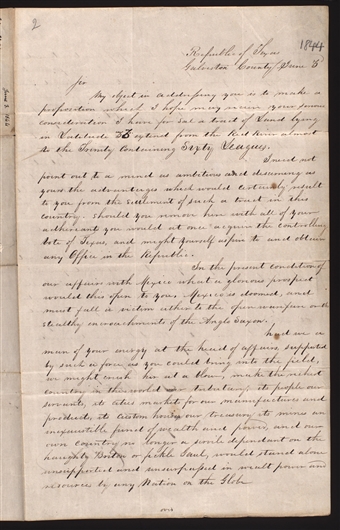 2
1844
Republic of Texas
Galveston County June 3d
Sir
My object in addressing you is to make a
proposition which I hope may receive your serious
consideration I have for Sale a tract of Land lying
in Latitude 33 extend from the Red River almost
to the Trinity Containing Sixty Leagues.
I need not
point out to a mind as ambitious and discerning as
yours the advantages which would certainly result
to you from the Settlement of such a tract in this
country. Should you remove here with all of your
adherents you would at once acquire the controlling
vote of Texas, and might yourself aspire to and obtain
any Office in the Republic.
In the present condition of
our affairs with Mexico what a glorious prospect
would this open to you, Mexico is doomed, and
must fall a victim either to the open warfare or the
stealthy encroachments of the Anglo Saxon.
had we a
man of your energy at the head of affairs supported
by such a force as you could bring into the field,
we might crush her at a blow, make the richest
country in this world our tributary, its people our
servants, its cities markets for our manufactures and
products, its custom houses our treasury its mines an
inexhaustible fund of wealth and power, and our
own country no longer a servile dependant on the
haughty Briton or fickle Gaul, would stand alone
unsupported and unsurpassed in wealth power and
resources by any Nation on the Globe
June 3. 1844